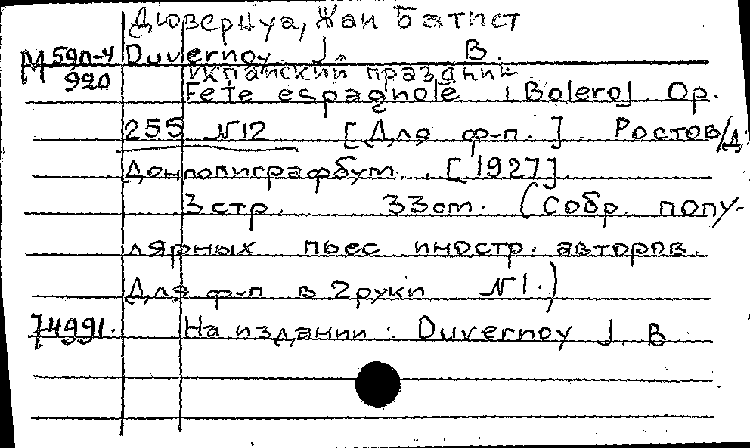 Дювернуа, Жан Батист
М 590-4 Duvernoy J. B.
920 Испанский праздник
Fete espagnole [Bolero] Op.
255 №12 [Для ф-п.] Ростов/Д
Донполиграфбум. [1927]
3 стр. 33 ст. (Собр. попу-
лярных пьес иностр. авторов.
Для ф-п в 2 руки №1.)
74991. На издании: Duvernoy J. B